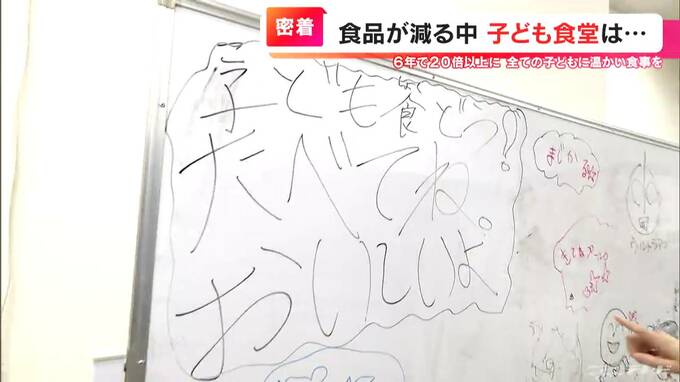 密着
食品が減る中 子ども食堂は…
6年で20倍以上に 全ての子どもに温かい食事を
子ども食どう!
たべてね。
おいしいよ
まじか
ウルトラマン